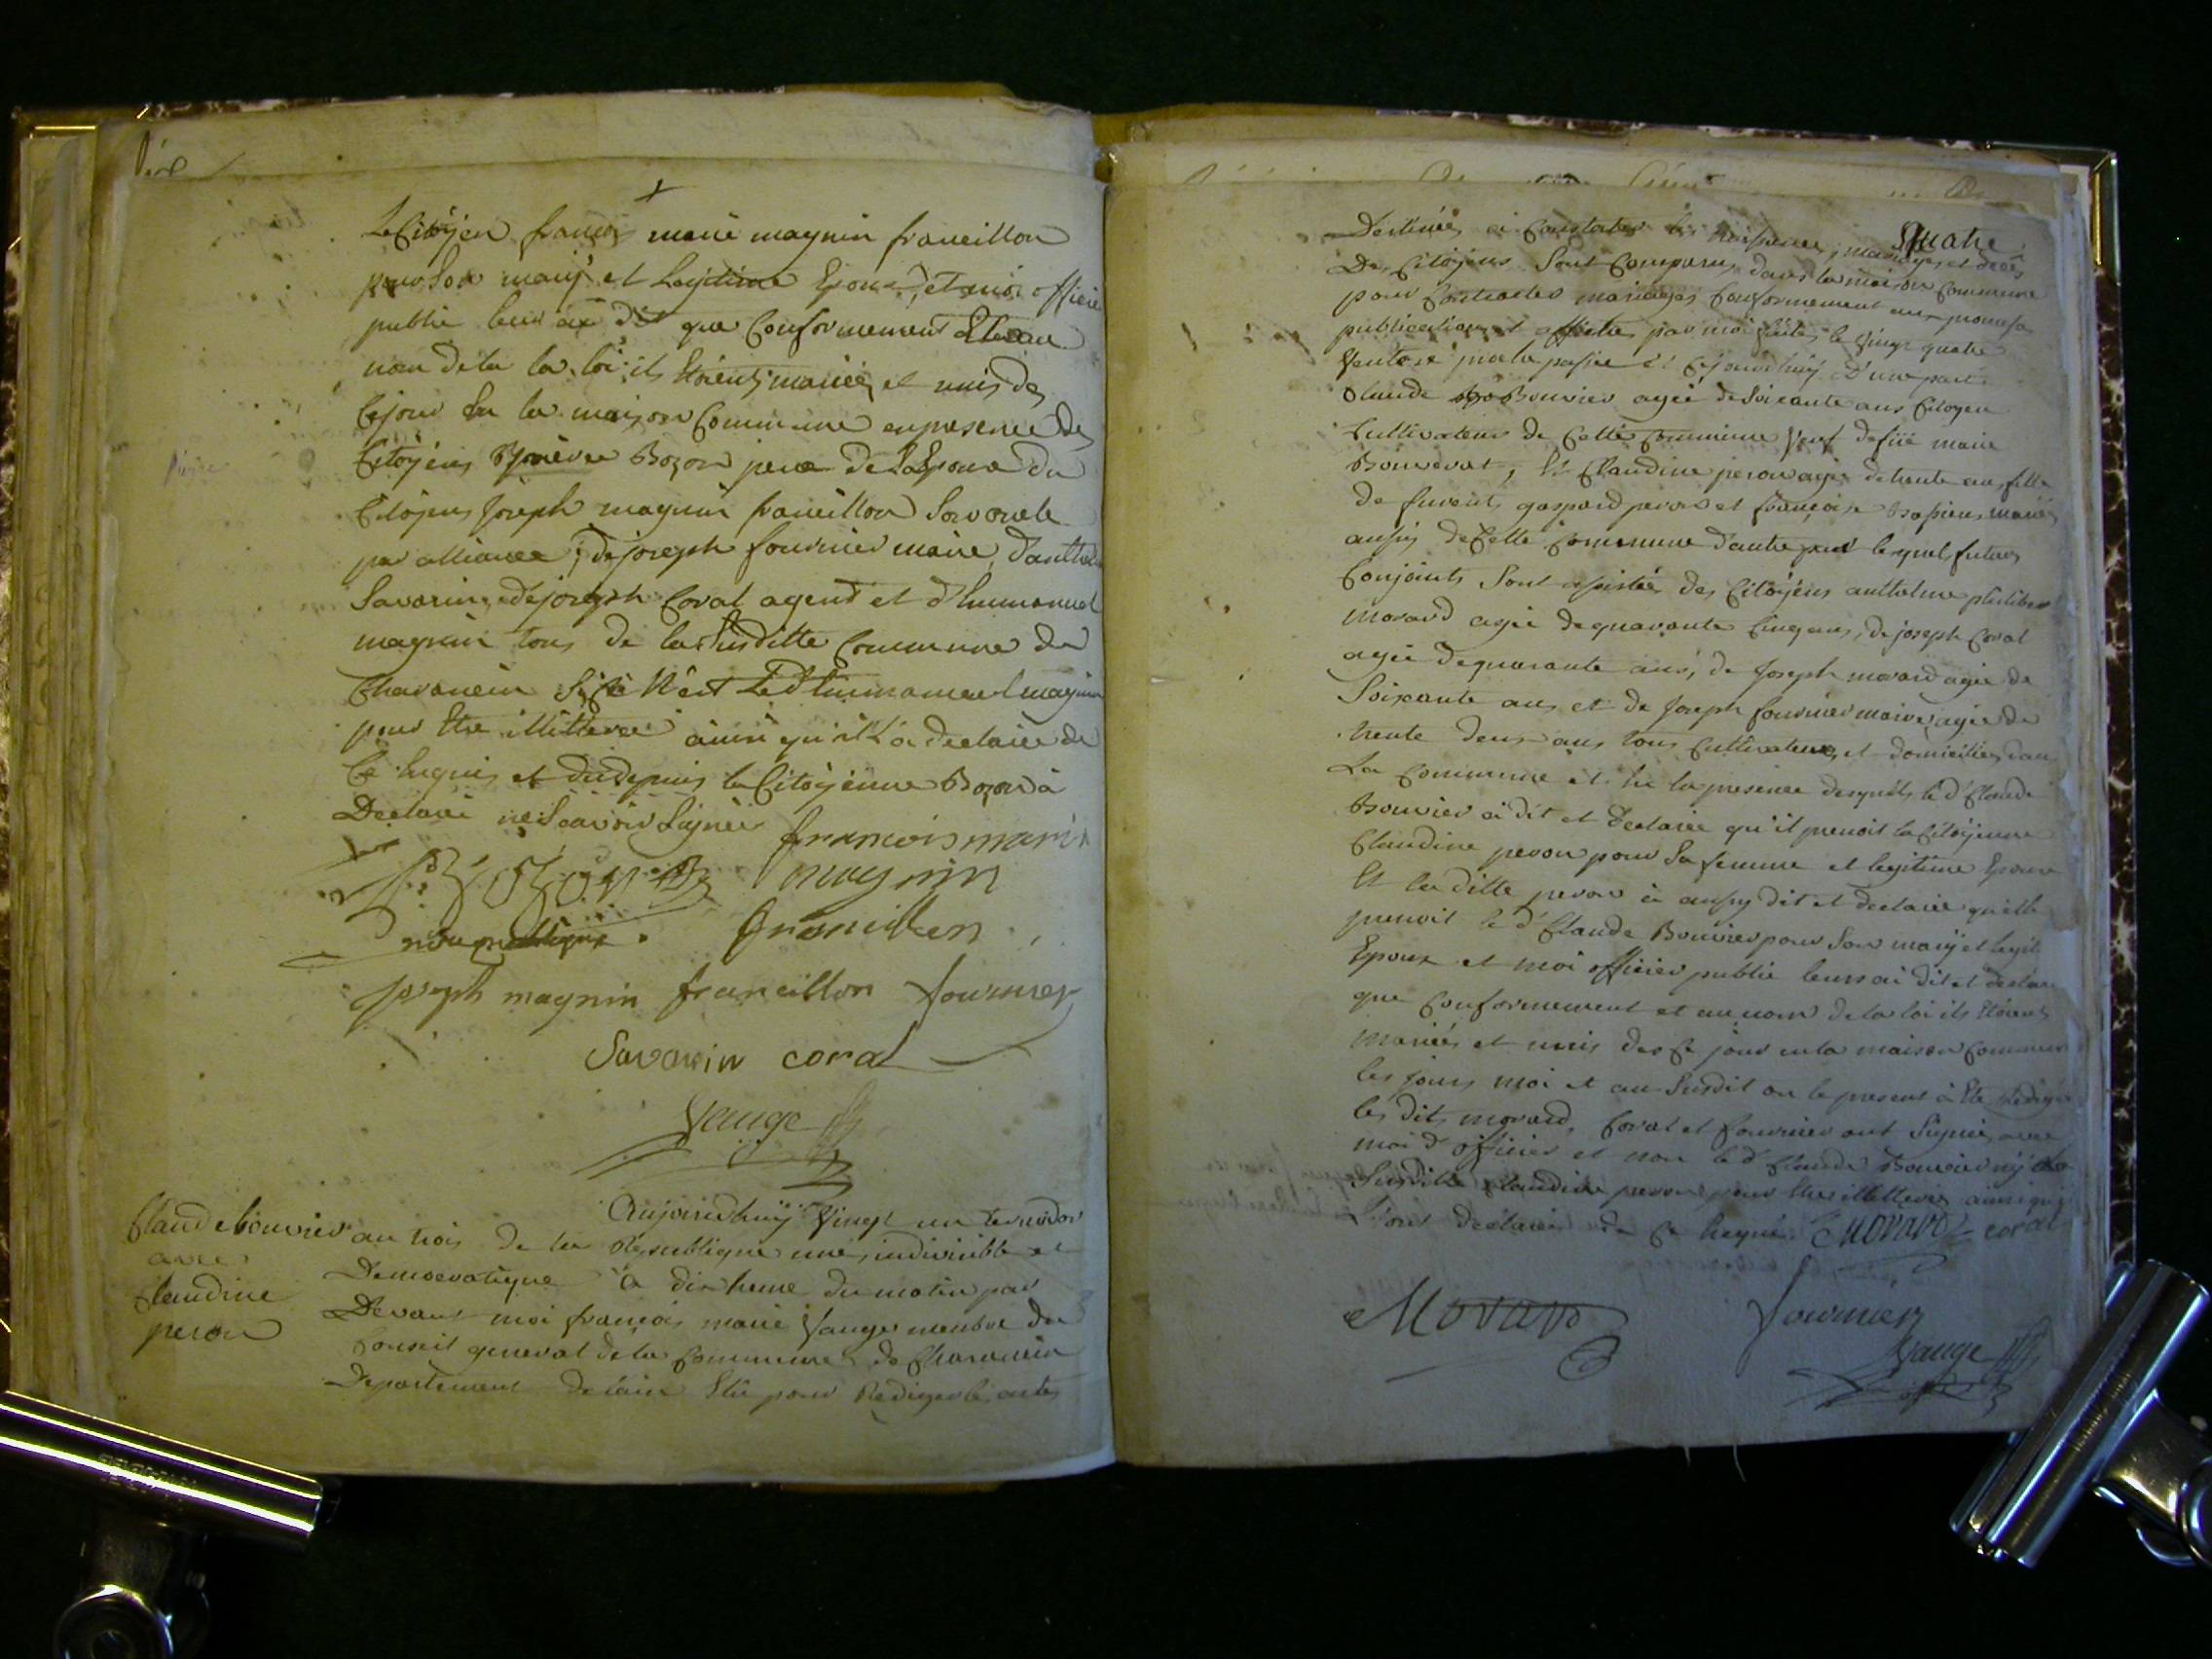 Le Citöÿen françois marie magnin francillon
pour Son marÿ et Legitime Epoux, et moi officié
public leur ai dit que Conformement et au
nom de la la loi ils Etoients mariéz et unis dez
Ce jour En la maison Commune en presence des
Citöÿens Bozon pere de L'Epouse du
Citöÿens Joseph magnin francillon Son oncle
par alliance; de joseph fournier maire, d'anthel
Savarin, de joseph Coral agend et d'humanuel
magnin tous de la Susditte Commune de
Charancin Si Ce N'est Le d humanuel magnin
pour Etre illitteréé ainsi qu'il L'a declairé de
Ce huquis et du depuis la Citöÿenne Bozon à
Declairé ne Scavoir Signér
francois marie
Bozon magnin
francillon
joseph magnin francillon fournier
Savarin coral
Vauge
Claude bouvier
avec
Claudine
peron
Aujourdhuÿ Vingt un
an trois de la Republique une, indivisible et
Democratique à dix heure du matin par
Devant moi françois marie Vauge membre du
Conseil general de la Commune de Charancin
Departement de l'ain Elu pour Rediger les actes
Quatre
Destinées à Constater les Naissences, mariages et decès
Des Citoÿens Sont Comparus dans la maison Commune
pour Contracter mariages Conformement aux promesse
publication et affiches par moi faites le Vingt quatre
Ventose proche passée Et Cejourdhuÿ D'une part
Claude Bouvier agéé de Soixante ans Citoyen
Cultivateur de Cette Commune Veuf de füe marie
Bouverat, Et Claudine peron agée de trente ans fille
de furent gaspard peron et françoise mariés
aussy de Cette Commune d'autre part lequels futurs
Conjoints Sont assistés des Citoÿens anthelme philibert
morard agée de quarante Cinq ans, de joseph Coral
agée de quarante ans, de Joseph morard agée de
Soixante ans et de Joseph fournier maire agée de
trente deux ans tous Cultivateurs et domiciliés dans
La Commune et En la presence desquéls le d Claude
Bouvier à dit et declairé qu'il prenoit la Citoÿenne
Claudine peron pour Sa femme et legitime Epouse
Et la ditte peron à aussy dit et declairé qu'elle
prenoit le d Claude Bouvier pour Son marÿ et legiti
Epoux et moi officier public leurs ai dit et declar
que Conformement et au nom de la loi ils Etoients
Mariés et unis dez Ce jour en la maison Commune
les jours moi et an Susdit ou le present à Eté redigé
les dits morard, Coral et fournier ont Signés avec
moi d officier et non le d Claude Bouvier nÿ la
Susditte Claudine peron pour Etre illitterés ainsi qu'
L'ont declairés de Ce huquis Morard coral
Morard fournier
Vauge